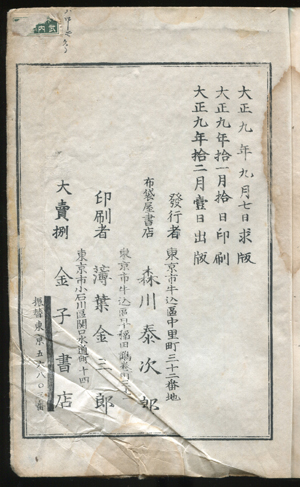 大正九年九月七日求版
大正九年拾一月拾日印刷
大正九年拾二月壹日出版
發行者 東京市牛込區中里町三十二番地
森川泰次郎
布袋屋書店
東京市牛込區早稲田鶴巻町
印刷者 薄葉金三郎
東京市小石川區関口水道町六十四
大賣捌 金子書店
振替東京五